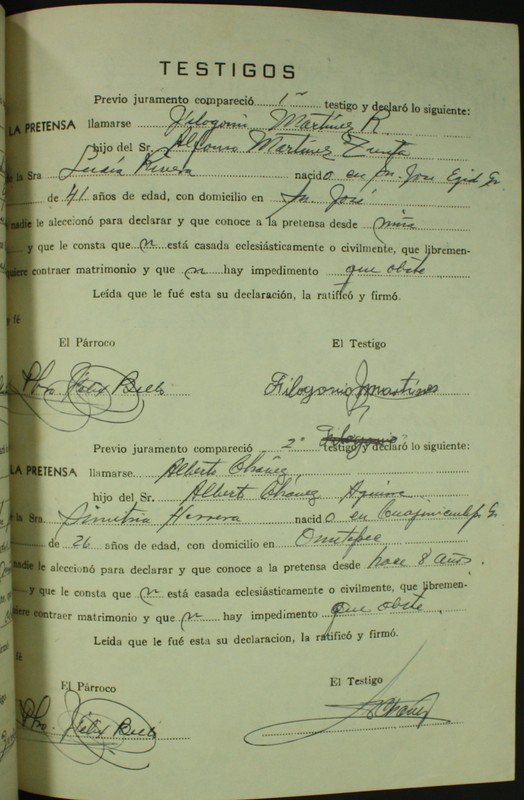 TESTIGOS
Previo juramento compareció 1er testigo y declaró lo siguiente:
LA PRETENSA llamarse Filogonio Martínez R.
hijo del Sr. Alfonso Martínez Zurita
la Sra Lucía Rivera nacido en Sn. José Ejid. G.
de 41 años de edad, con domicilio en Sn. José
nadie le aleccionó para declarar y que conoce a la pretensa desde niña
y que le consta que no está casada eclesiásticamente o civilmente, que libremen-
quiere contraer matrimonio y que no hay impedimento que obste
Leída que le fué esta su declaración, la ratificó y firmó.
y fé
El Párroco El Testigo
Pbro. Félix Filogonio Martínez
Filogonio
Previo juramento compareció 2o testigo y declaró lo siguiente:
LA PRETENSA llamarse Alberto Chávez
hijo del Sr. Alberto Chávez Aguirre
la Sra. Dimitria Herrera nacido en Cuajinicuilapa G.
de 26 años de edad, con domicilio en Ometepec
nadie le aleccionó para declarar y que conoce a la pretensa desde hace 8 años.
y que le consta que no está casada eclesiásticamente o civilmente, que libremen-
quiere contraer matrimonio y que no hay impedimento que obste.
Leída que le fué esta su declaracion, la ratificó y firmó.
fé
El Párroco El Testigo
Pbro. Félix AChávez